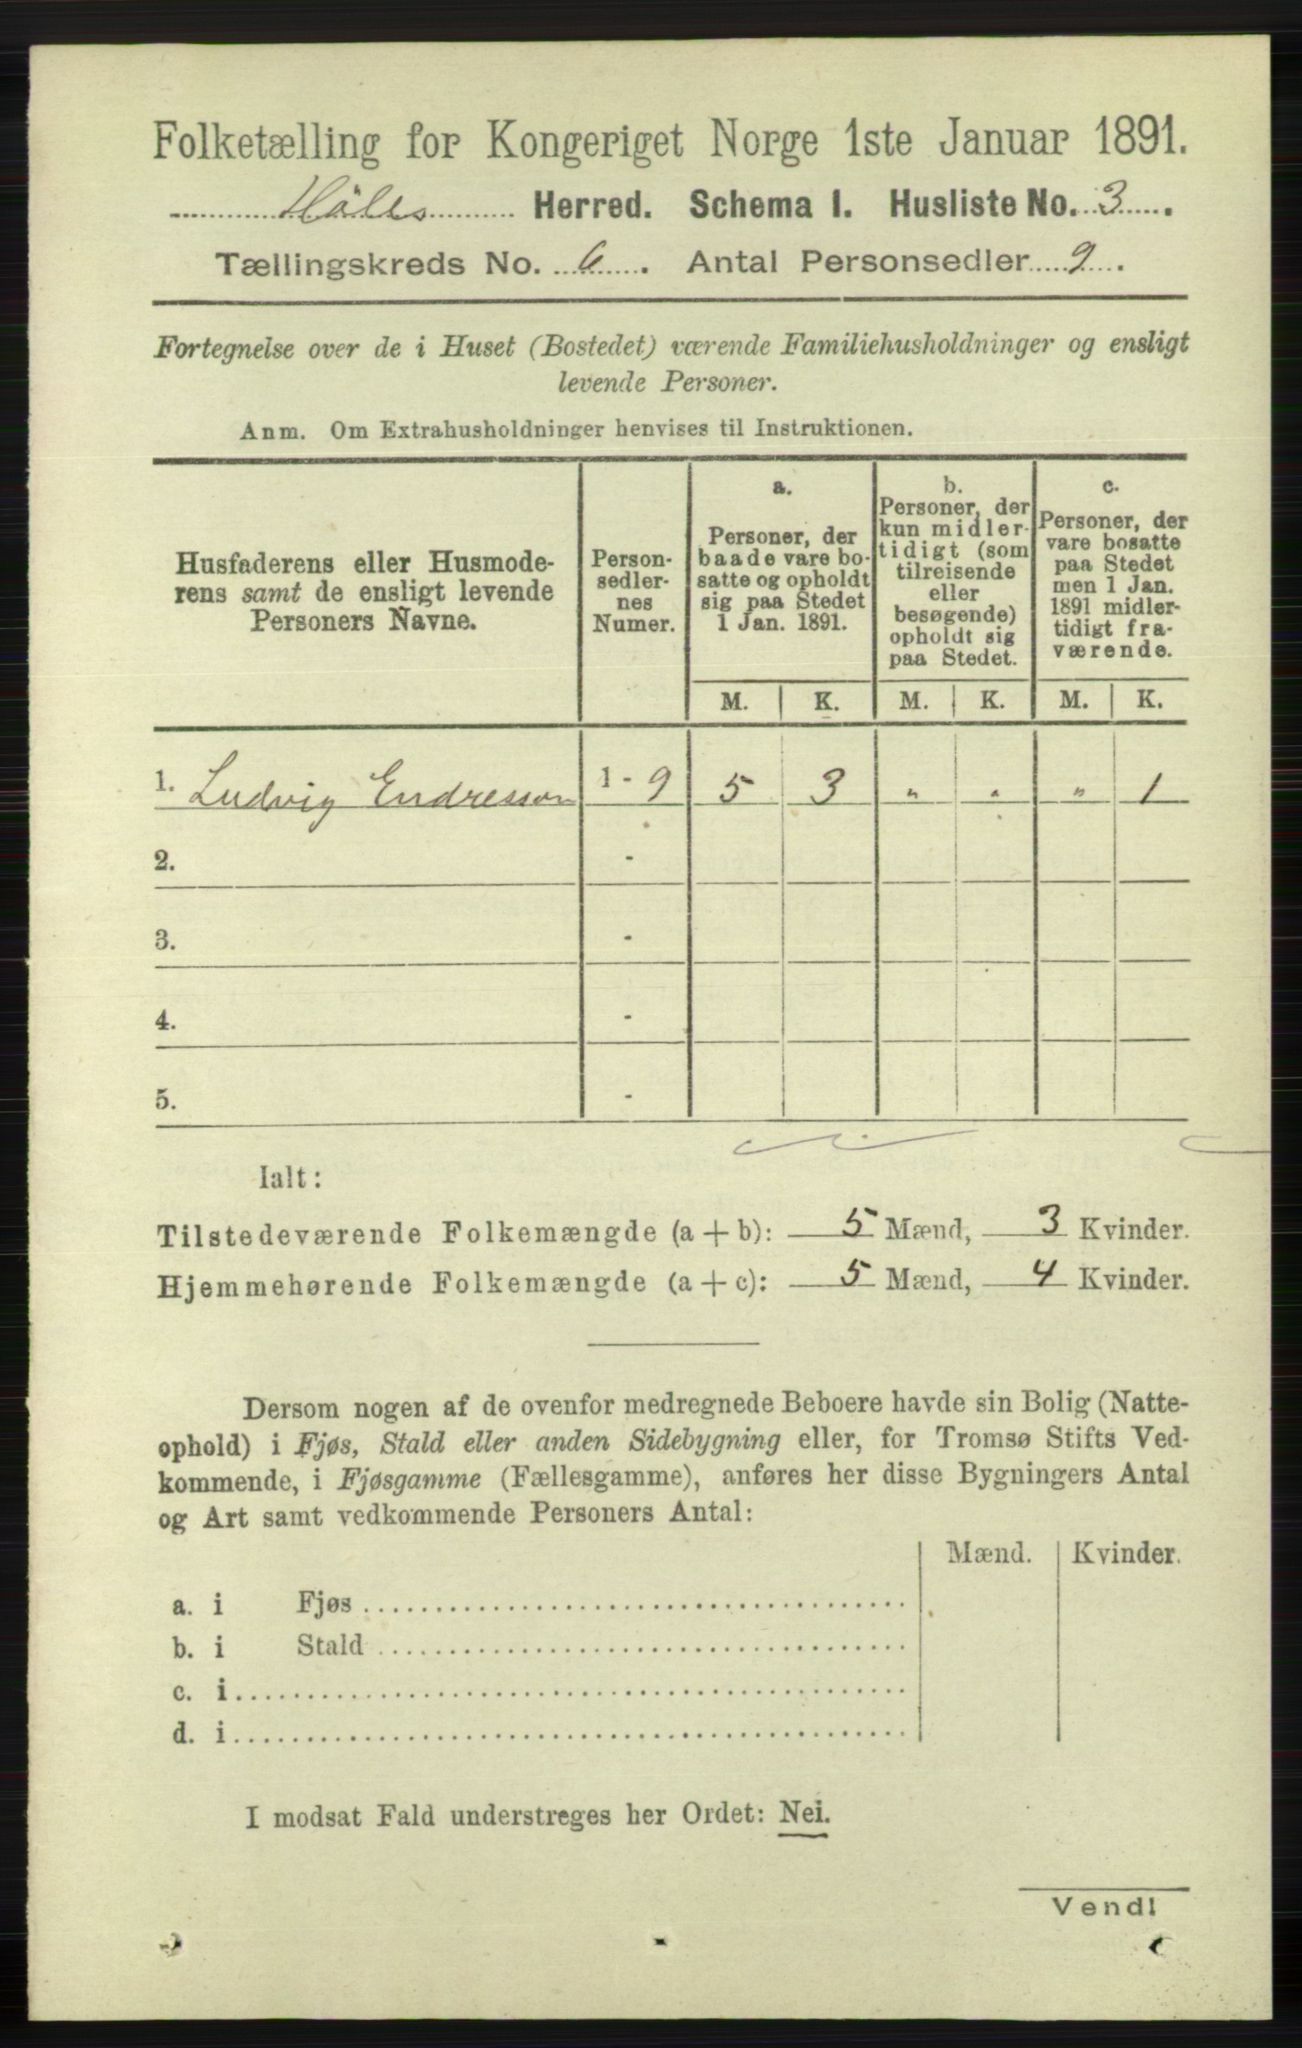 Folketælling for Kongeriget Norge 1ste Januar 1891.
Höles Herred. Schema I. Husliste No. 3.
Tællingskreds No. 6. Antal Personsedler 9.
Fortegnelse over de i Huset (Bostedet) værende Familiehusholdninger og ensligt
levende Personer.
Anm. Om Extrahusholdninger henvises til Instruktionen.
Husfaderens eller Husmode-
rens samt de ensligt levende
Personers Navne.
Person-
sedler-
nes
Numer.
a.
Personer, der
baade vare bo-
satte og opholdt
sig paa Stedet
1 Jan. 1891.
b.
Personer, der
kun midler-
tidigt (som
tilreisende
eller
besøgende)
opholdt sig
paa Stedet.
c.
Personer, der
vare bosatte
paa Stedet
men 1 Jan.
1891 midler-
tidigt fra-
værende.
M. K. M. K. M. K.
1. Ludvig Endresson 1 - 9 5 3 " " " 1
2. -
3. -
4. -
5. -
Ialt:
Tilstedeværende Folkemængde (a + b): 5 Mænd, 3 Kvinder.
Hjemmehørende Folkemængde (a + c): 5 Mænd, 4 Kvinder.
Dersom nogen af de ovenfor medregnede Beboere havde sin Bolig (Natte-
ophold) i Fjøs, Stald eller anden Sidebygning eller, for Tromsø Stifts Ved-
kommende, i Fjøsgamme (Fællesgamme), anføres her disse Bygningers Antal
og Art samt vedkommende Personers Antal:
Mænd. Kvinder.
a. i Fjøs
b. i Stald
c. i
d. i
I modsat Fald understreges her Ordet: Nei.
Vend!